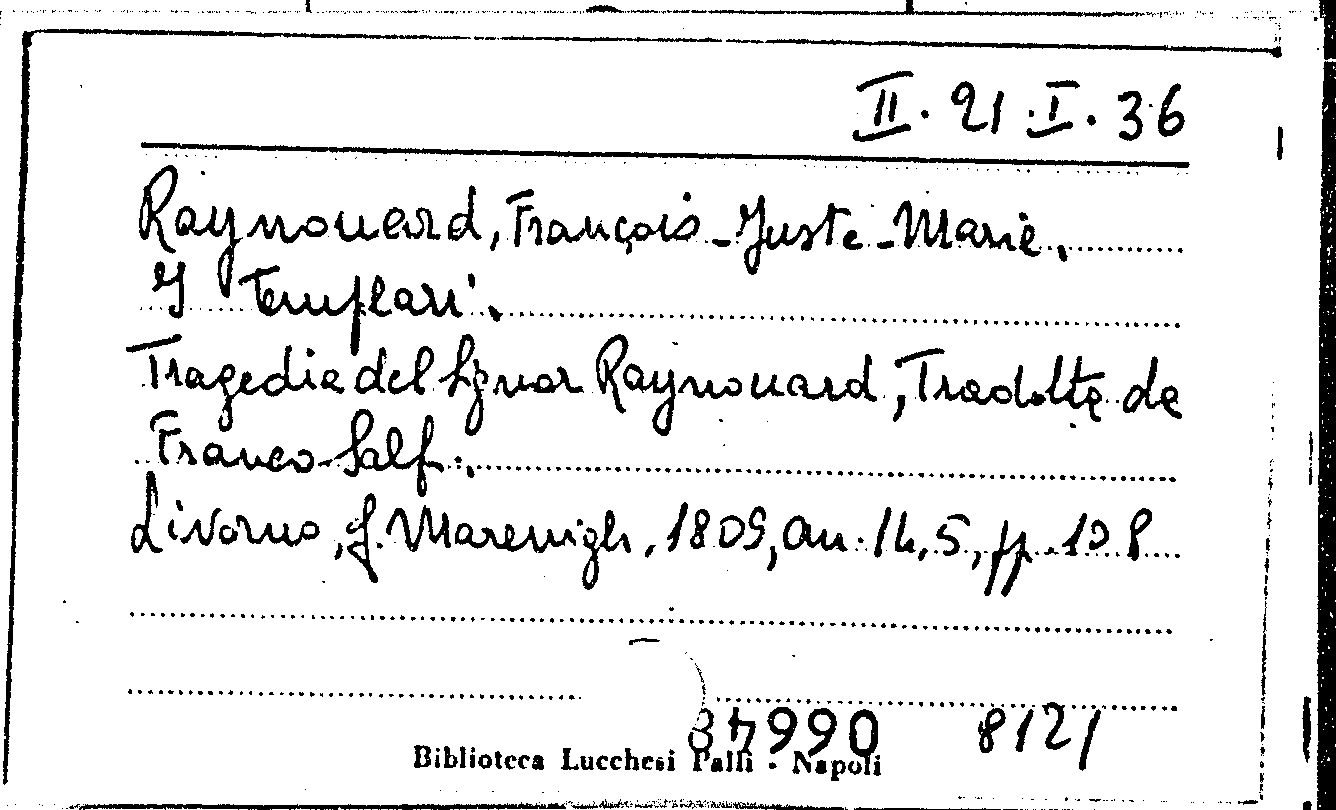 II. 21. I. 36
Raynouard, François-Juste-Marie.
I Templari.
Tragedia del Signor Raynouard, Tradotta da
Franco Salf.
Livorno, G. Marenigh, 1809, 5, pp. 108
8121
Biblioteca Lucchesi Palli - Napoli